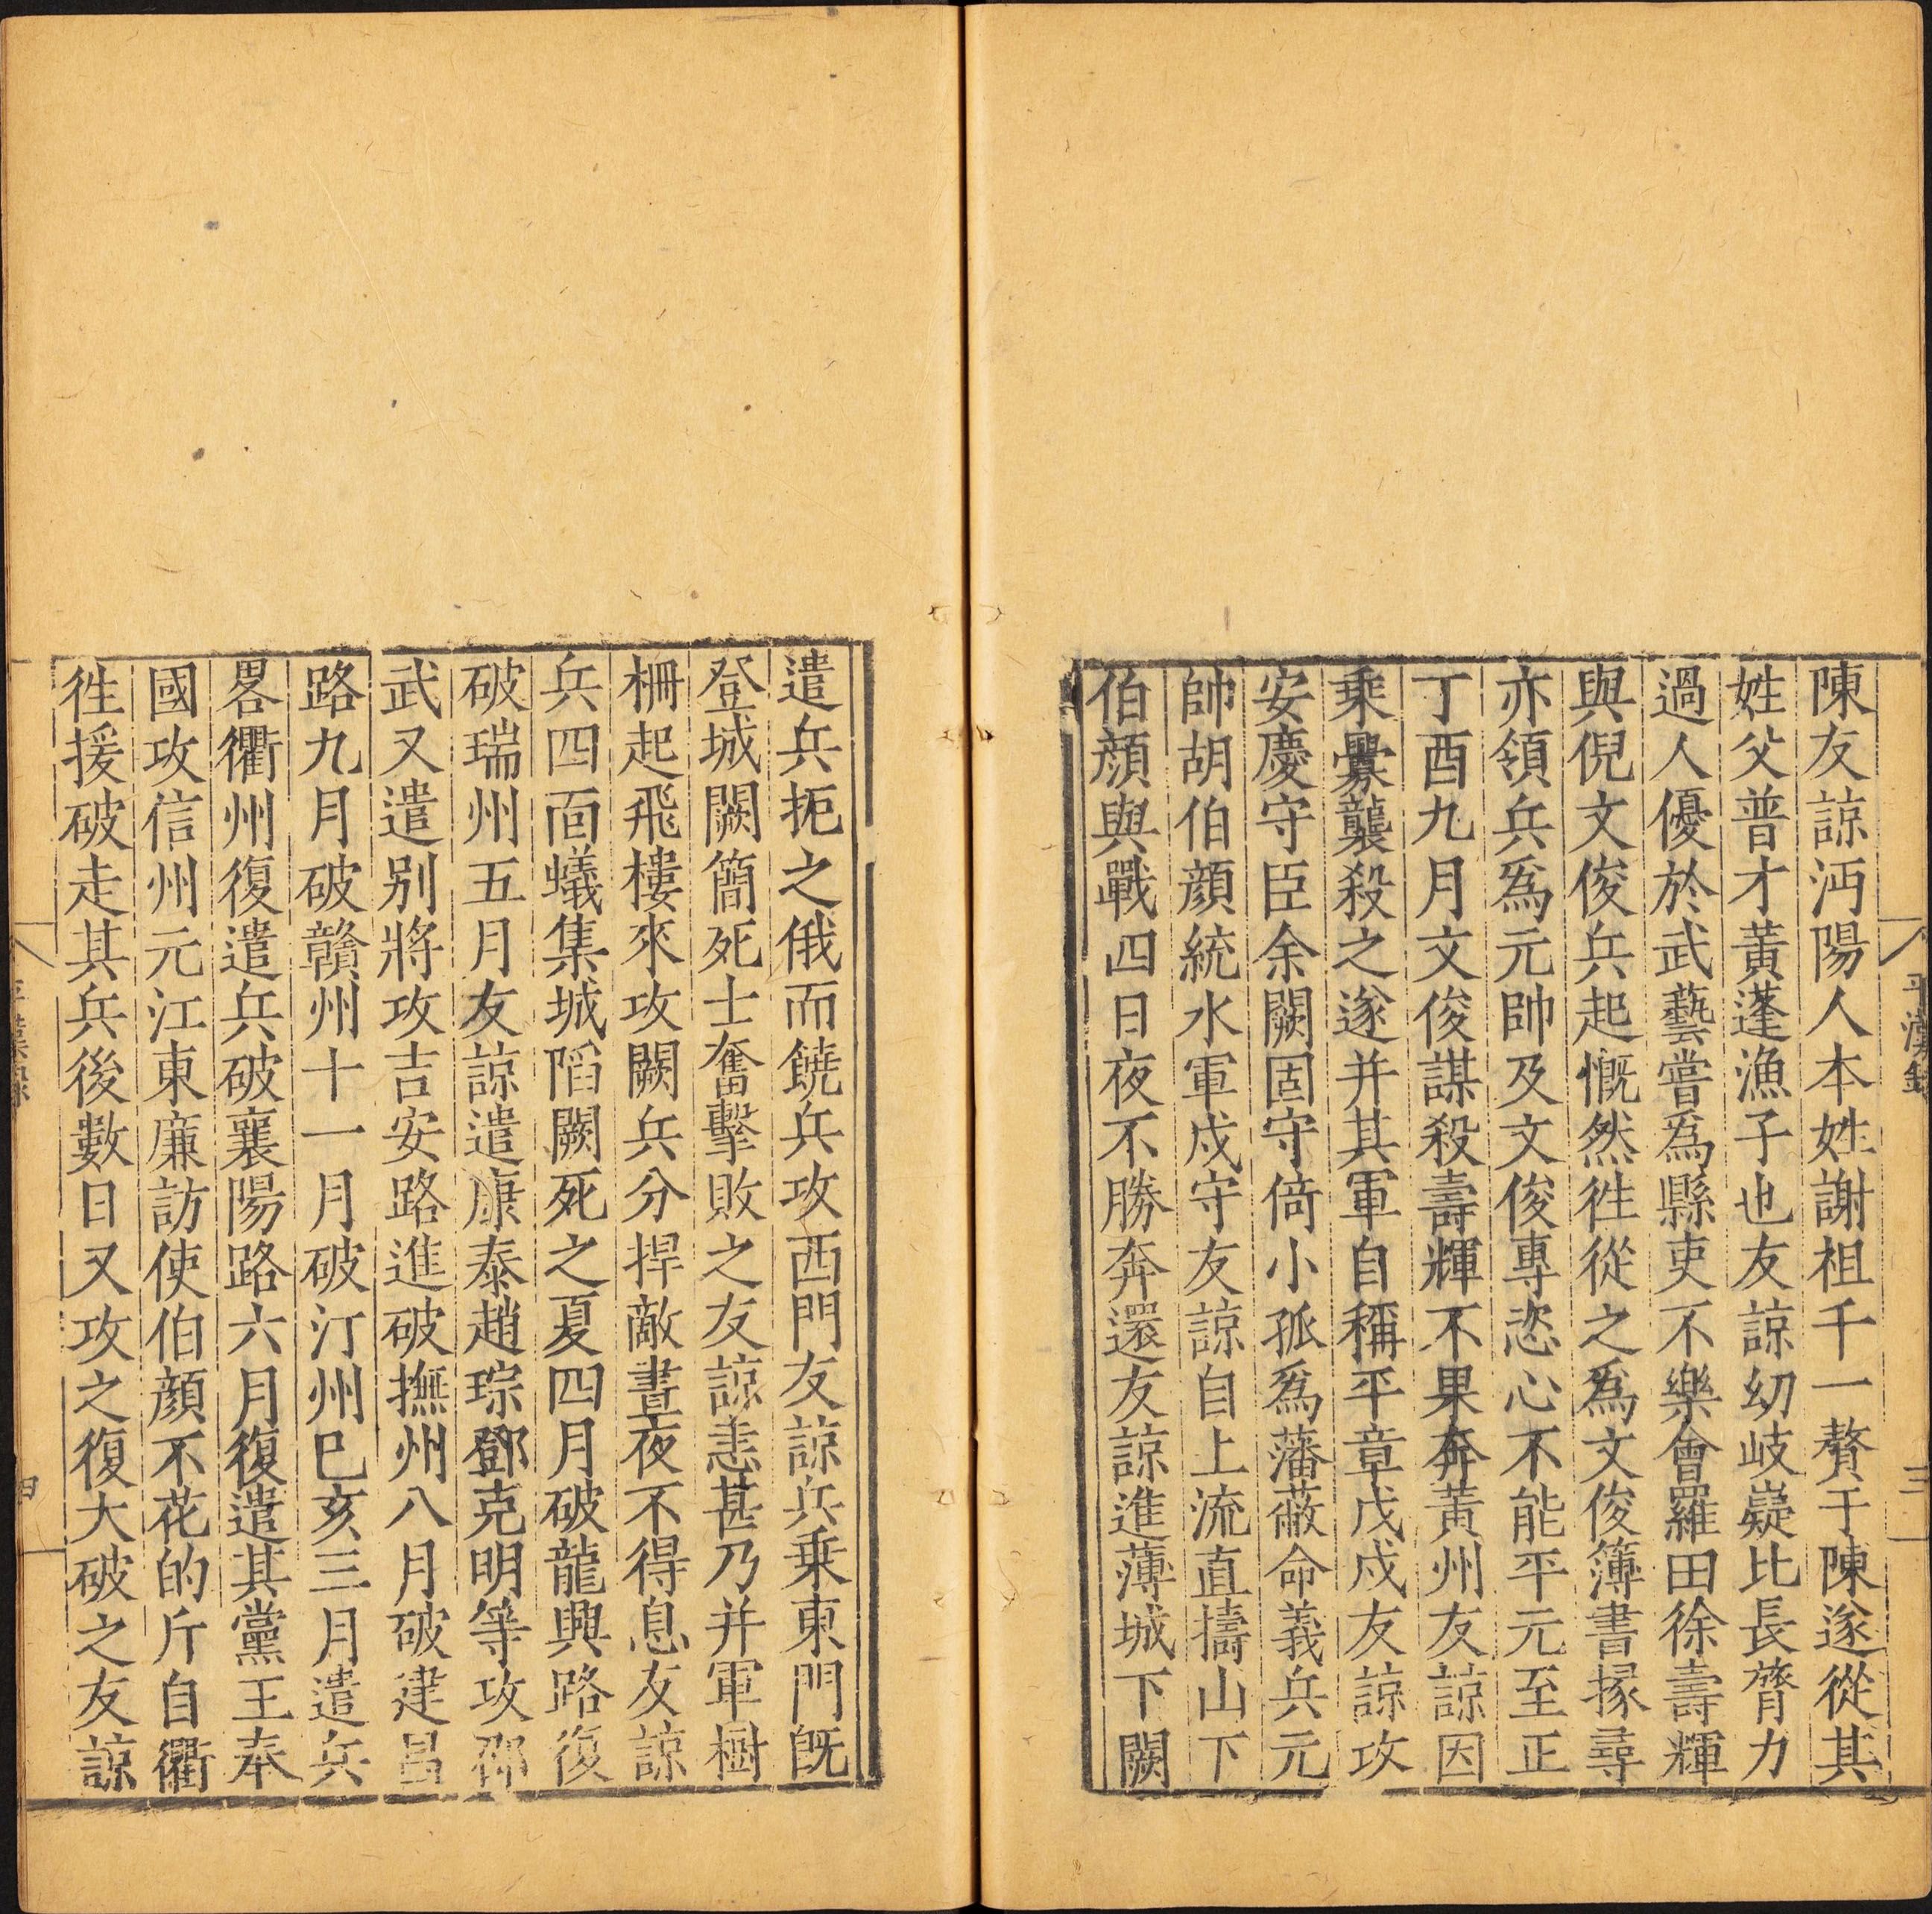 陳友諒沔陽人本姓謝祖千一贅于陳遂從其
姓父普才黃蓬漁子也友諒幼岐嶷比長膂力
過人優於武藝嘗爲縣吏不樂會羅田徐壽輝
與倪文俊兵起慨然徃從之爲文俊簿書掾尋
亦領兵爲元帥及文俊專恣心不能平元至正
丁酉九月文俊謀殺壽輝不果奔黃州友諒因
乘釁襲殺之遂并其軍自稱平章戊戍友諒攻
安慶守臣余闕固守倚小孤爲藩蔽命義兵元
帥胡伯顔統水軍戍守友諒自上流直擣山下
伯顔與戰四日夜不勝奔還友諒進薄城下闕
遣兵扼之俄而饒兵攻西門友諒兵乗東門旣
登城闕簡死士奮擊敗之友諒恚甚乃并軍樹
柵起飛樓來攻闕兵分捍敵晝夜不得息友諒
兵四面蟻集城䧟闕死之夏四月破龍興路復
破瑞州五月友諒遣康泰趙琮鄧克明等攻邵
武又遣别將攻吉安路進破撫州八月破建昌
路九月破贛州十一月破汀州巳亥三月遣兵
畧衢州復遣兵破襄陽路六月復遣其黨王奉
國攻信州元江東廉訪使伯顔不花的斤自衢
徃援破走其兵後數日又攻之復大破之友諒
平漢錄
三
四